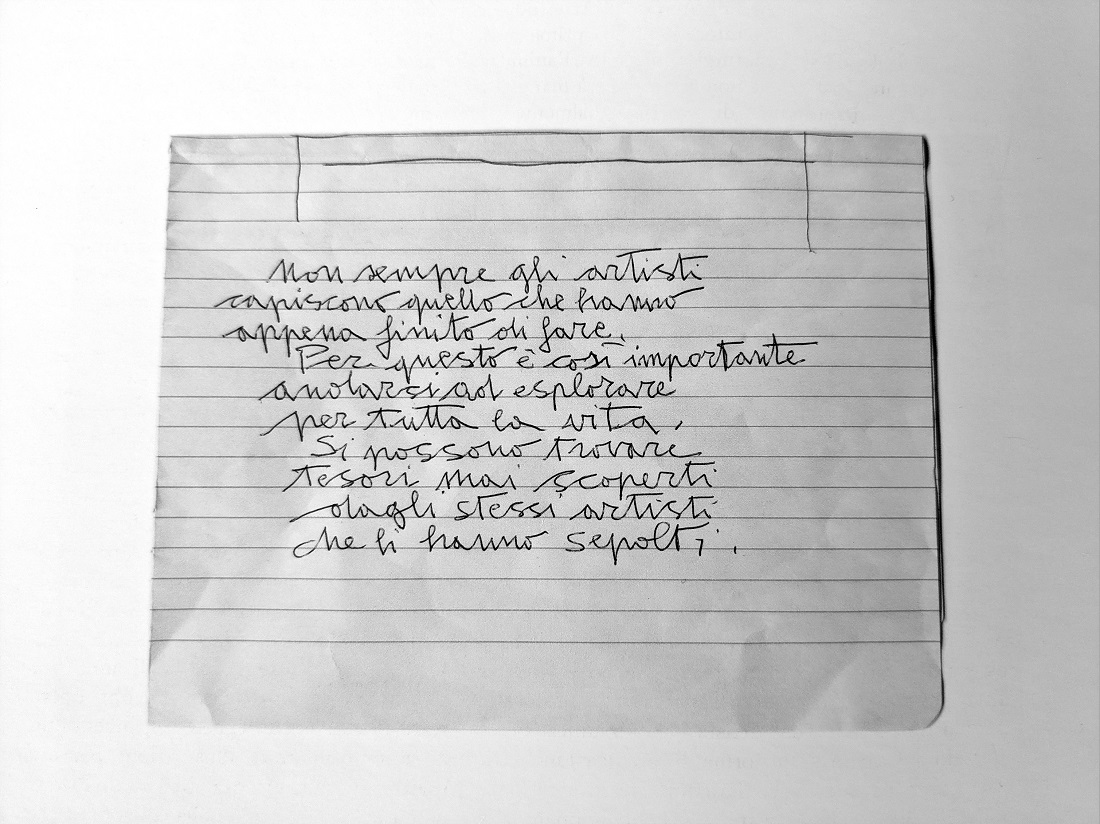 Non sempre gli artisti
capiscono quello che hanno
appena finito di fare.
Per questo è così importante
andarsi ad esplorare
per tutta la vita,
Si possono trovare
tesori mai scoperti
dagli stessi artisti
che li hanno sepolti.